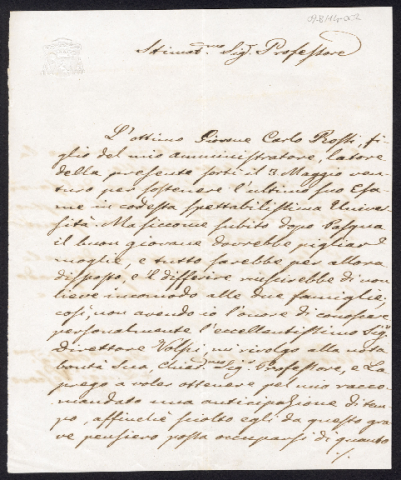 Stimat.mo Sig. Professore
L'ottimo Giovane Carlo Rossi, fi-
glio del mio amministratore, latore
della presente sortì il 3 Maggio ven-
turo per sostenere l'ultimo suo Esa-
me in codesta spettabilissima Univer-
sità. Ma siccome subito dopo Pasqua
il buon giovane dovrebbe pigliar
moglie e tutto sarebbe per allora
disposto, e il differire riuscirebbe di non
lieve incomodo alle due famiglie;
così, non avendo io l'onore di conoscere
personalmente l'eccellentissimo Sig.
direttore Volpi, mi rivolgo alla nota
bontà Sua, Chiar.mo Sig. Professore, e La
prego a voler ottenere pel mio racco-
mandato una anticipazione di tem-
po, affinchè sciolto egli da questo gra-
ve pensiero possa occuparsi di quanto
./.